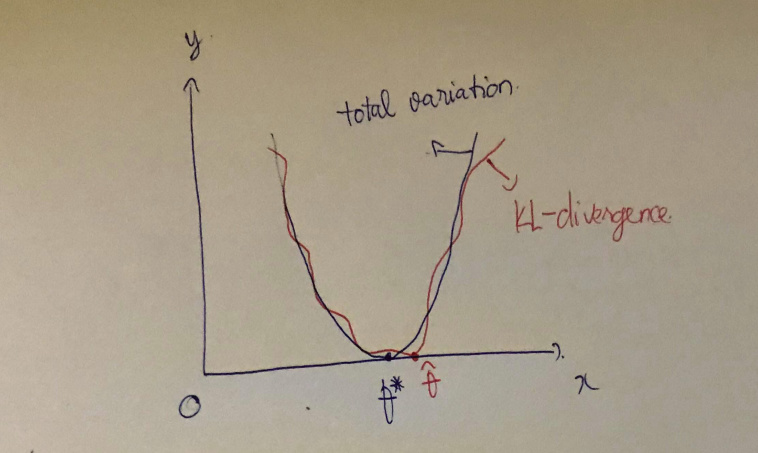 y
total variation
KL-divergence
O
x